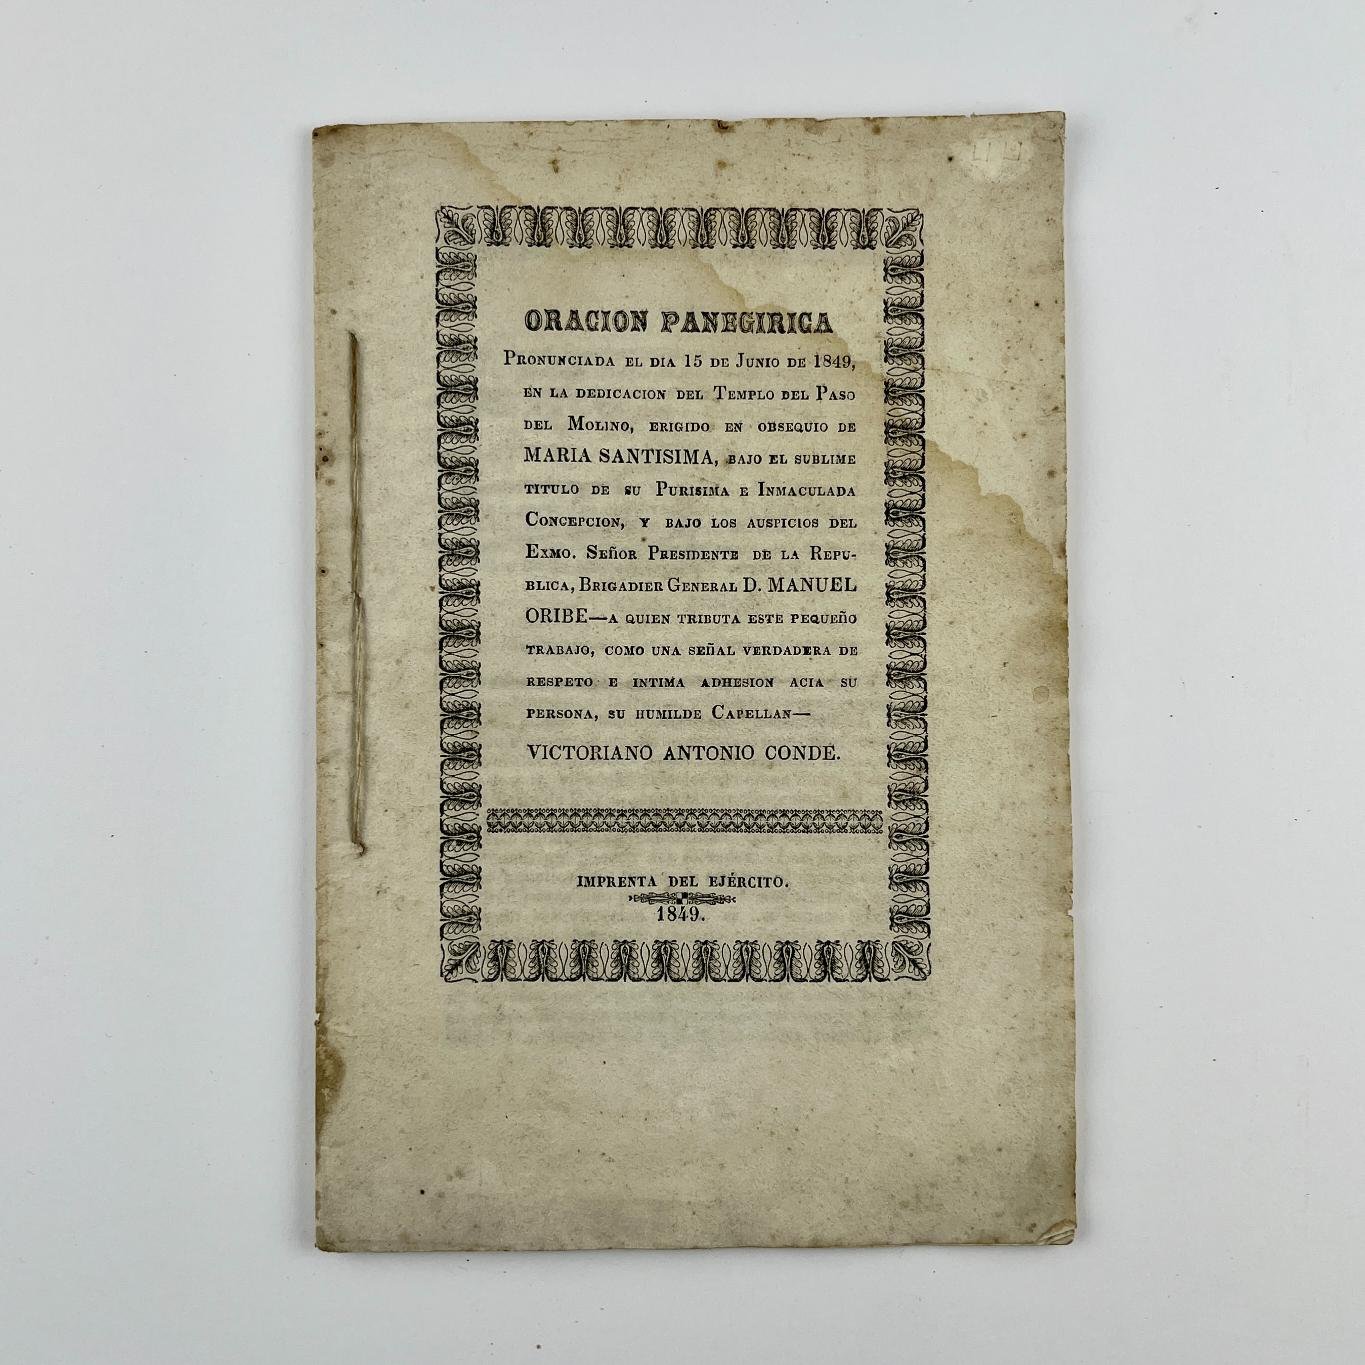 ORACION PANEGIRICA
PRONUNCIADA EL DIA 15 DE JUNIO DE 1849,
EN LA DEDICACION DEL TEMPLO DEL PASO
DEL MOLINO, ERIGIDO EN OBSEQUIO DE
MARIA SANTISIMA, BAJO EL SUBLIME
TITULO DE SU PURISIMA E INMACULADA
CONCEPCION, Y BAJO LOS AUSPICIOS DEL
EXMO. SEÑOR PRESIDENTE DE LA REPU-
BLICA, BRIGADIER GENERAL D. MANUEL
ORIBE—A QUIEN TRIBUTA ESTE PEQUEÑO
TRABAJO, COMO UNA SEÑAL VERDADERA DE
RESPETO E INTIMA ADHESION ACIA SU
PERSONA, SU HUMILDE CAPELLAN—
VICTORIANO ANTONIO CONDE.
IMPRENTA DEL EJÉRCITO.
1849.